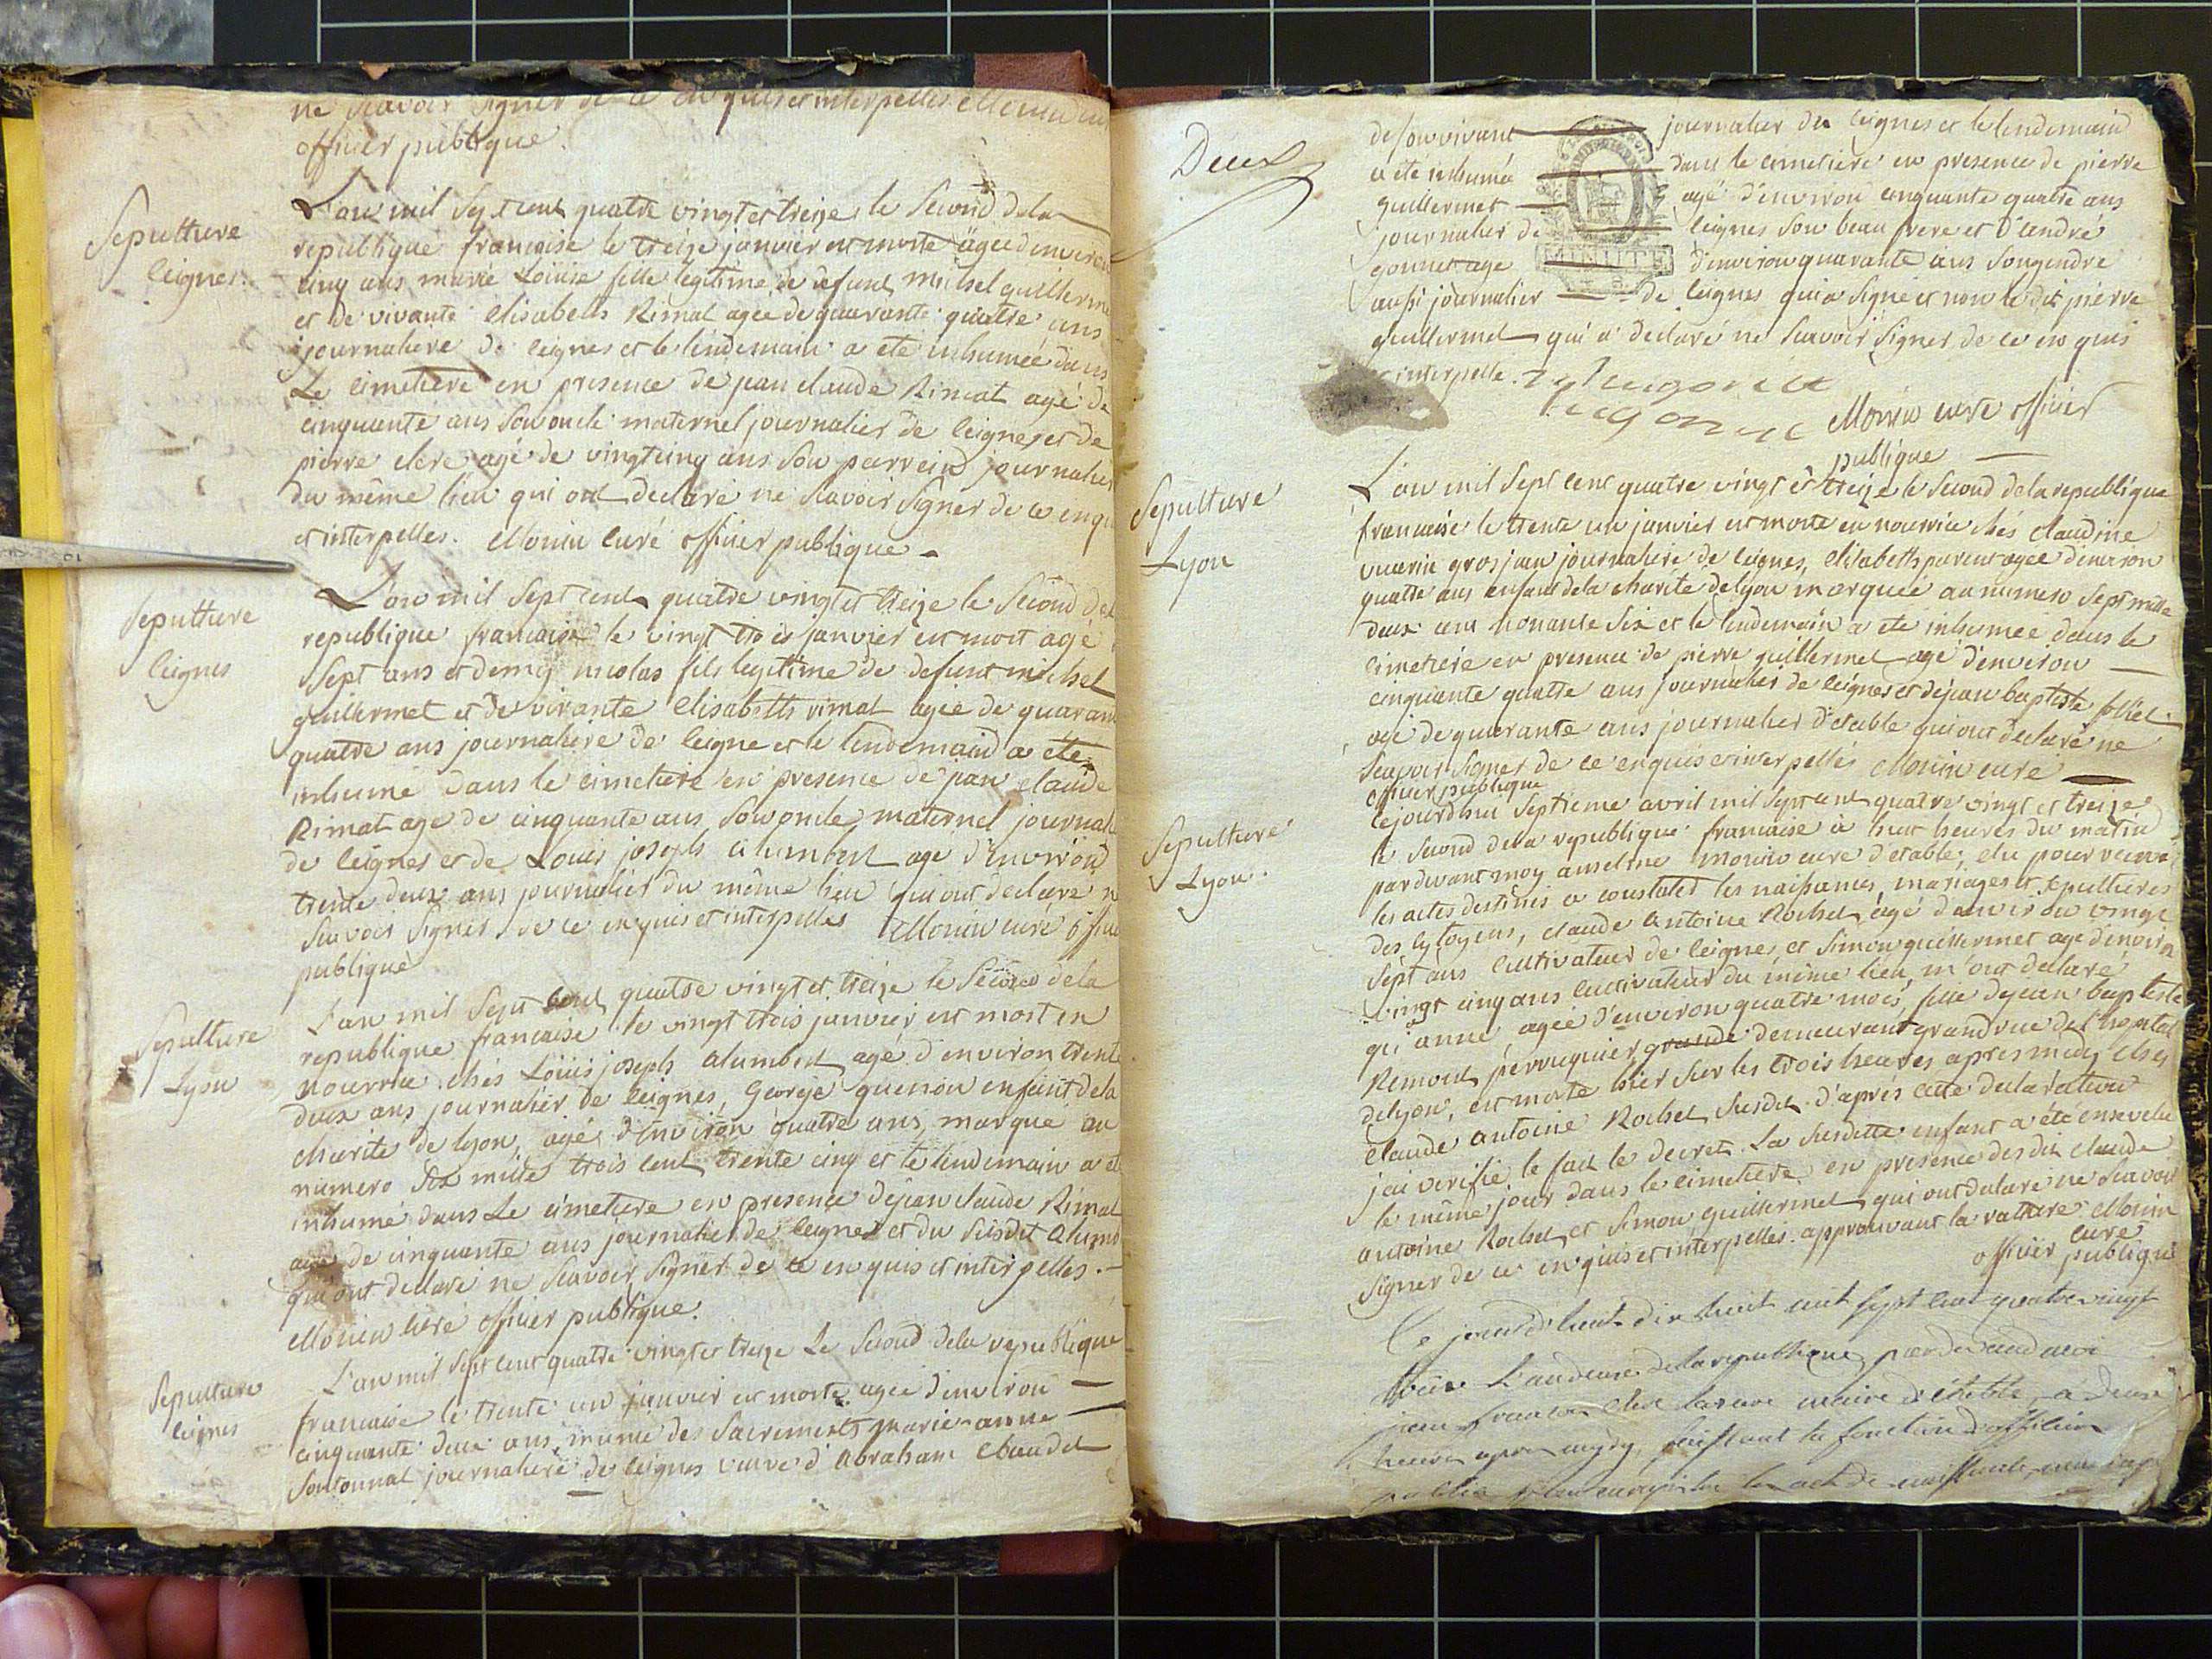 ne scavoir signer de ce enquis et interpellés Monin curé
officier publique.
Sepulture
leignes.
L'an mil sept cent quatre vingt et treize, le second dela
republique françoise le treize janvier est morte agée d'environ
cinq ans marie Loüise fille legitime de defunt michel guillerme
et de vivante elisabeth Rimat agée de quarante quatre ans
journaliere de leignes et le lendemain a eté inhumée dans
Le cimetiere en presence de jean claude Rimat agé de
cinquante ans son oncle maternel journalier de leignes et de
pierre clere agé de vingt cinq ans son parrein journalier
du même lieu qui ont declaré ne scavoir signer de ce enqu
et interpelles. Monin curé officier publique
Sepulture
leignes
L'an mil sept cent quatre vingt et treize le second de la
republique francaise le vingt trois janvier est mort agé
sept ans et demy nicolas fils legitime de defunt michel
guillermet et de vivante Elisabeth rimat agée de quarante
quatre ans journaliere de leigne et le lendemain a eté
inhumé dans le cimetiere en presence de jean claude
Rimat age de cinquante ans son oncle maternel journali
de leignes et de Louis joseph alumbert age d'environ
trente deux ans journalier du même lieu qui ont declare n
scavoir signer de ce enquis et interpelles Monin curé offici
publique
Sepulture
Lyon
L'an mil sept cent quatre vingt et treize le second de la
republique francaise le vingt trois janvier est mort en
nourrice chés Loüis joseph alumbert agé d'environ trente
deux ans journalier de leignes, George guenion enfant de la
charite de lyon, agé d'environ quatre ans, marqué au
numero six mille trois cent trente cinq et le lendemain a et
inhumé dans Le cimetiere en presence de jean claude Rimat
agé de cinquante ans journalier de leignes et du susdit alumb
qui ont declaré ne scavoir signer de ce enquis et interpelles.
Monin curé officier publique.
Sepulture
leignes
L'an mil sept cent quatre vingt et treize Le second dela republique
francaise le trente un janvier est morte agée d'environ
cinquante deux ans, munie des sacrements marie-anne
Sontonnat journaliere de leignes veuve d'Abraham Chaudet
Deux
de son vivant journalier de leignes et le lendemain
a eté inhumée dans le cimetiere en presence de pierre
guillermet agé d'environ cinquante quatre ans
journalier de leignes son beau frere et d'andré
gonnet agé d'environ quarante ans son gendre
aussi journalier de leignes qui a signé et non le dit pierre
guillermet qui a declaré ne scavoir signer de ce enquis
interpelle.
Monin curé officier
publique
MINUTE
Sepulture
Lyon
L'an mil sept cent quatre vingt et treize le second dela republique
francaise le trente un janvier est morte en nourrice chés claudine
vuarin grosjean journaliere de leignes, elisabeth parent agée d'environ
quatre ans enfant de la charite de lyon marquée au numero sept mille
deux cent nonante six et le lendemain a eté inhumée dans le
cimetiere en presence de pierre guillermet agé d'environ
cinquante quatre ans journalier de leignes et de jean baptiste
agé de quarante ans journalier d'etable qui ont declaré ne
scavoir signer de ce enquis et interpellés Monin curé
officier publique
Sepulture
Lyon.
Cejourdhui septieme avril mil sept cent quatre vingt et treize
le second dela republique francaise à huit heures du matin
pardevant moy anselme monin curé d'etable, elu pour recevoir
les actes destinés a constater les naissances, mariages et sepultures
des cytoyens, claude antoine Rochet agé d'environ vingt
sept ans cultivateur de leigne, et simon guillermet age d'environ
vingt cinq ans cultivateur du même lieu, m'ont declaré
qu'anne, agée d'environ quatre mois, fille de jean baptiste
Remond perruquier grande demeurant grand rue de l'hopital
de lyon, est morte hier sur les trois heures apres midy chés
claude antoine Rochet susdit d'apres cette declaration
j'ai verifié le fait le decret. La susditte enfant a eté ensevelie
le même jour dans le cimetiere en presence des dits claude
antoine Rochet et simon guillermet qui ont declaré ne scavoir
signer de ce enquis et interpelles. approuvant la rature Monin
curé
officier publique
Ce jourd'huit dix huit sept cent quatre vingt
L'an deux de la republique par devand moi
jean maire d'étable, a deux
heures apres mydy, faissant la fonction d'officier